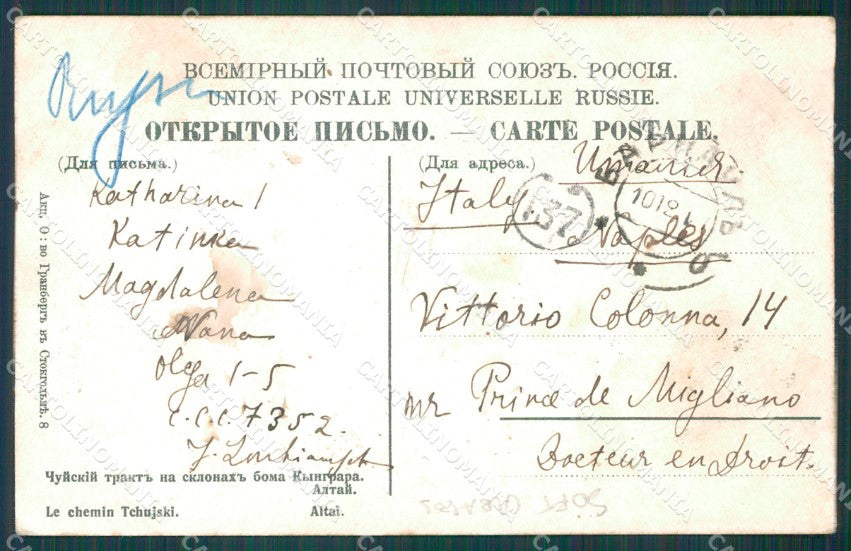 ВСЕМІРНЫЙ ПОЧТОВЫЙ СОЮЗЪ. РОССІЯ.
UNION POSTALE UNIVERSELLE RUSSIE.
ОТКРЫТОЕ ПИСЬМО. — CARTE POSTALE.
(Для письма.)
Katharina 1
Katinka
Magdalena
Nana
Olga 1-5
C.C.C. 7352.
J.
Чуйскій трактъ на склонахъ бома Кынграра.
Алтай.
Le chemin Tchujski. Altaï.
Акц. О:во Гранбергъ въ Стокгольмѣ. 8
(Для адреса.)
Italy
Naples
Vittorio Colonna, 14
mr Prince de Migliano
Docteur en droit.
БАРНАУЛЪ
137
CARTOLINOMANIA